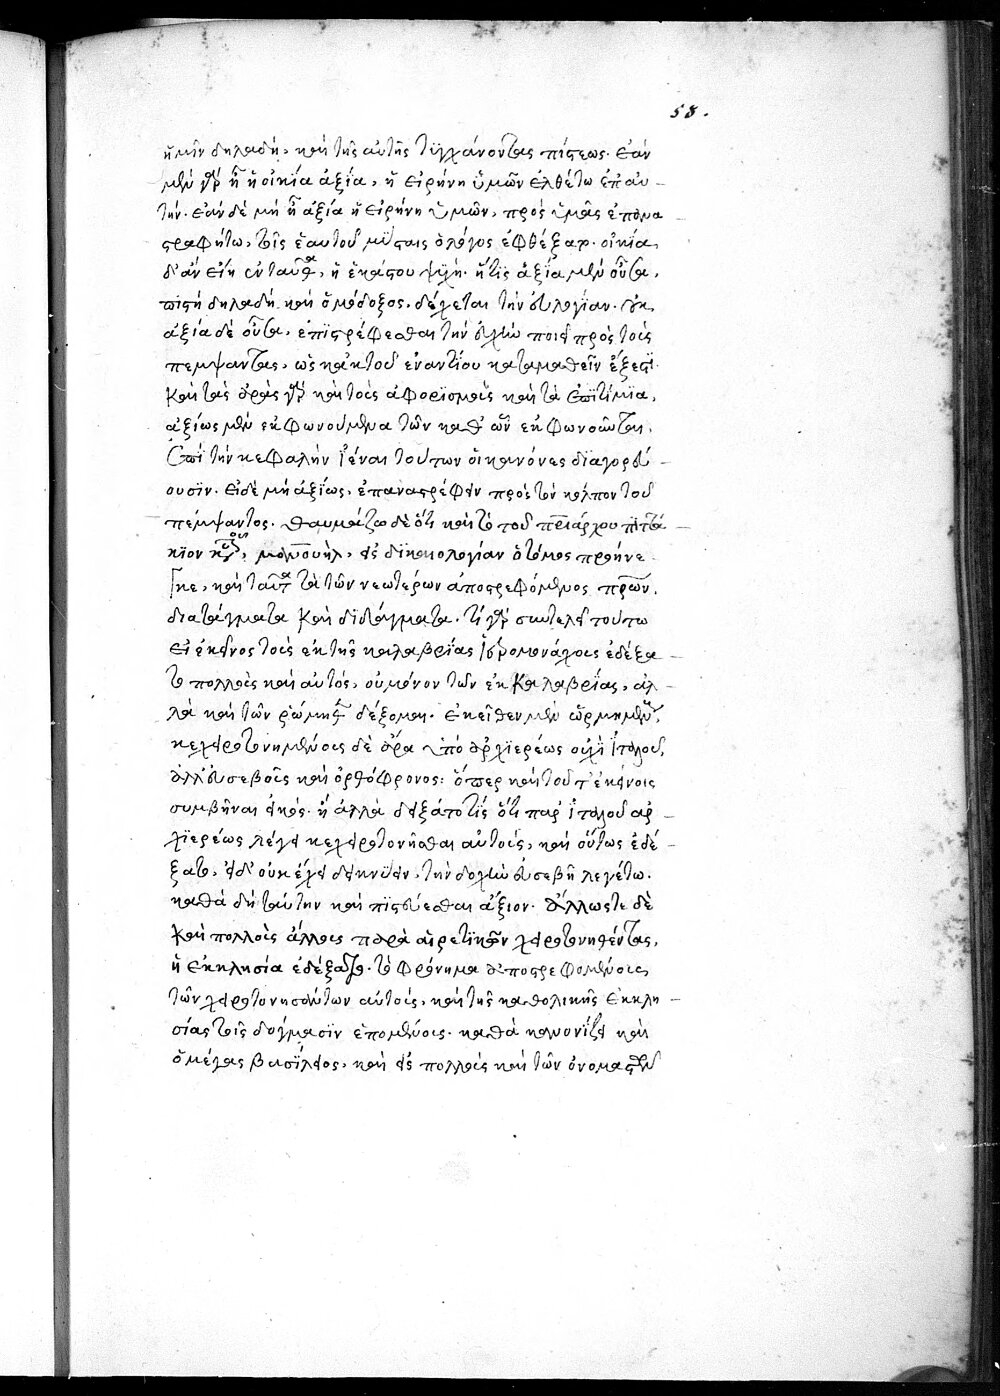 58.
ἡμῖν δηλαδὴ, καὶ τῆς αὐτῆς τυγχάνοντας πίστεως. ἐὰν
μὲν γὰρ ᾖ ἡ οἰκία ἀξία, ἡ εἰρήνη ὑμῶν ἐλθέτω ἐπ' αὐ-
τήν. ἐὰν δὲ μὴ ᾖ ἀξία ἡ εἰρήνη ὑμῶν, πρὸς ὑμᾶς ἐπανα-
στραφήτω, τοῖς ἑαυτοῦ μύσταις ὁ λόγος ἐφθέξατο. οἰκία
δ' ἂν εἴη ἐνταῦθα, ἡ ἑκάστου ψυχή. ἥτις ἀξία μὲν οὖσα,
πιστὴ δηλαδὴ καὶ ὁμόδοξος, δέχεται τὴν εὐλογίαν. οὐκ
ἀξία δὲ οὖσα, ἐπιστρέφεσθαι τὴν εὐχὴν ποιεῖ πρὸς τοὺς
πέμψαντας, ὡς κἀκ τοῦ ἐναντίου καταμαθεῖν ἔξεστι.
καὶ τὰς ἀρὰς γὰρ καὶ τοὺς ἀφορισμοὺς καὶ τὰ ἐπιτίμια,
ἀξίως μὲν ἐκφωνούμενα τῶν καθ' ὧν ἐκφωνοῦνται,
ἐπὶ τὴν κεφαλὴν ἰέναι τούτων οἱ κανόνες διαγορεύ-
ουσιν. εἰ δὲ μὴ ἀξίως, ἐπαναστρέφειν πρὸς τὸν κόλπον τοῦ
πέμψαντος. θαυμάζω δὲ ὅτι καὶ τὸ τοῦ πριάρχου πιττά-
κιον κυροῦ, μανουὴλ, εἰς δικαιολογίαν ὁ τόμος προήνε
γκε, καὶ ταῦτα τὰ τῶν νεωτέρων ἀποστρεφόμενος πρων,
διατάγματα καὶ διδάγματα. τί γὰρ συντελεῖ τούτω
εἰ ἐκεῖνος τοὺς ἐκ τῆς καλαβρίας ἱερομονάχους ἐδέξα-
το πολλοὺς καὶ αὐτὸς, οὐ μόνον τῶν ἐκ Καλαβρίας, ἀλ-
λὰ καὶ τῶν ῥώμης δέξομαι. ἐκεῖθεν μὲν ὡρμημένους,
κεχειροτονημένους δὲ ἄρα ὑπὸ ἀρχιερέως οὐχὶ ἰταλοῦ,
ἀλλ' εὐσεβοῦς καὶ ὀρθόφρονος: ὅπερ καὶ τοῦτ' ἐκείνοις
συμβῆναι εἰκός. ἢ ἀλλὰ δειξάτο τίς ὅτι παρ' ἰταλοῦ ἀρ-
χιερέως λέγει κεχειροτονῆσθαι αὐτοὺς, καὶ οὕτως ἐδέ-
ξατο, εἰ δ' οὐκ ἔχει δεικνύειν, τὴν δοχὴν εὐσεβῆ λεγέτω.
καθὰ δὴ ταύτην καὶ πιστεύεσθαι ἄξιον. ἄλλως τε δὲ
καὶ πολλοὺς ἄλλους παρὰ αἱρετικῶν χειροτονηθέντας,
ἡ ἐκκλησία ἐδέξατο. τὸ φρόνημα ἀποστρεφομένους
τῶν χειροτονησάντων αὐτοὺς, καὶ τῆς καθολικῆς ἐκκλη-
σίας τοῖς δόγμασιν ἑπομένους. καθὰ κανονίζει καὶ
ὁ μέγας βασίλειος, καὶ εἰς πολλοὺς καὶ τῶν ὀνομαστῶν